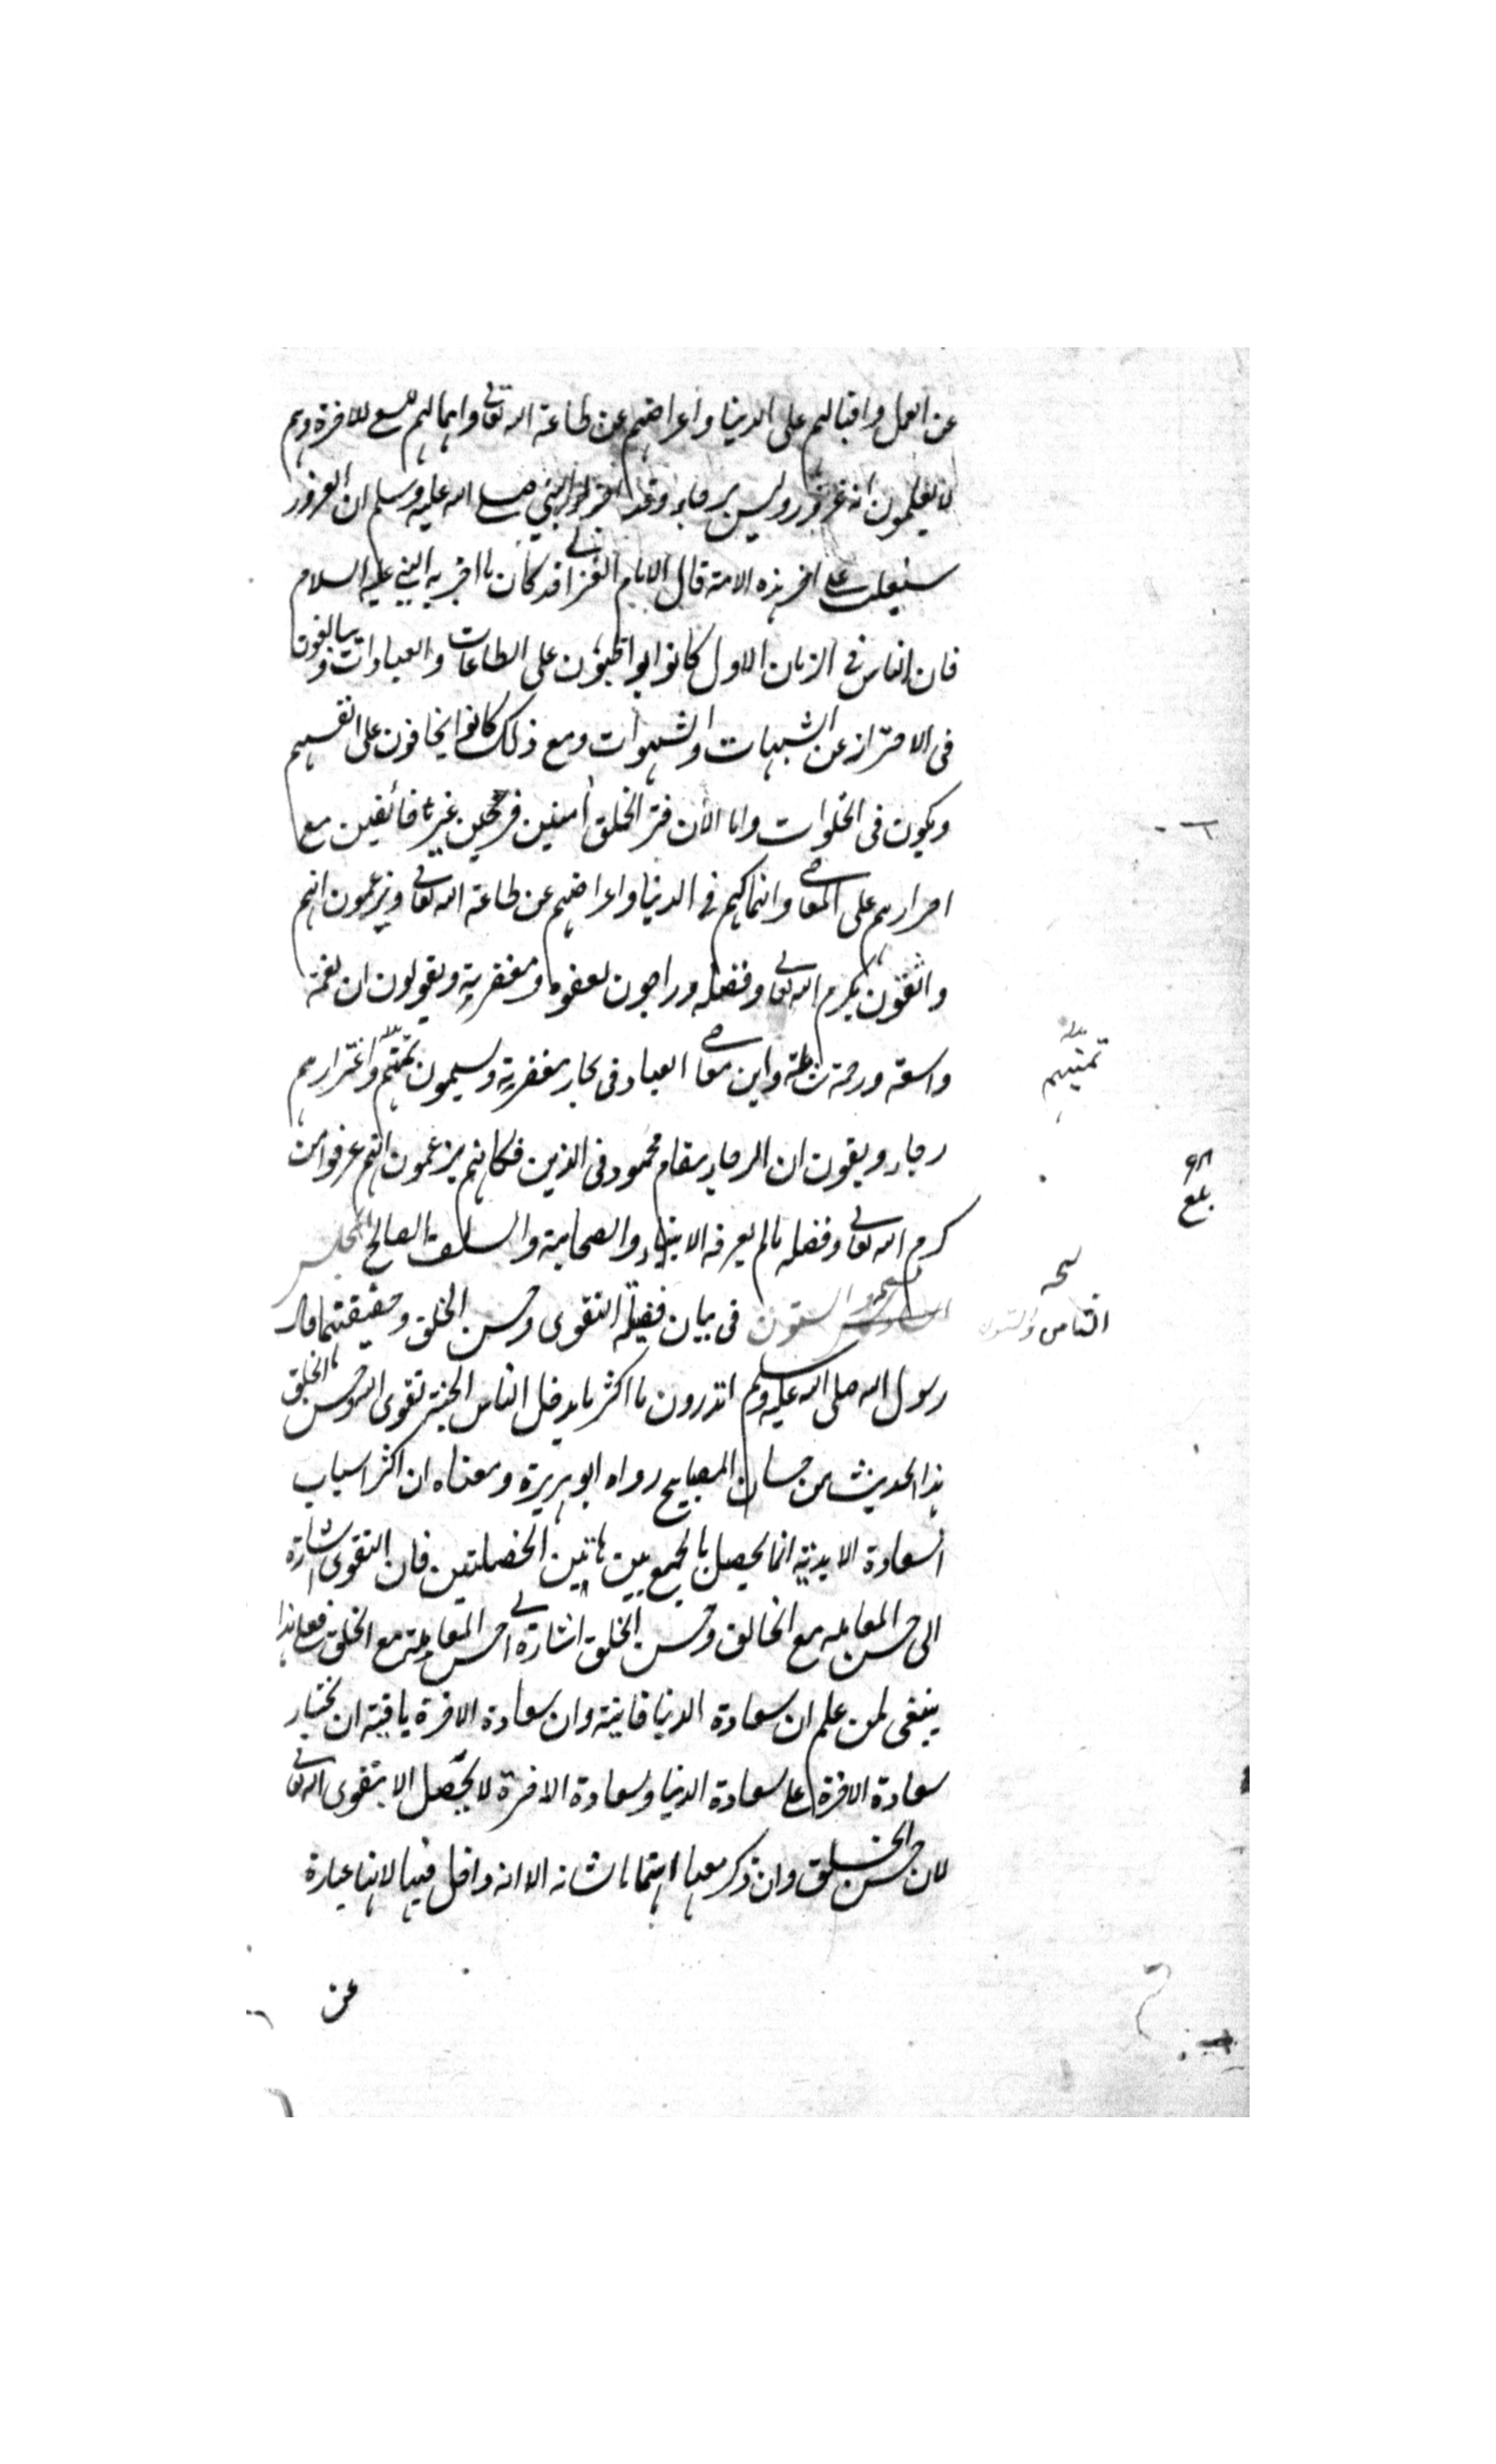 عن العمل واقبالهم على الدنيا واعراضهم عن طاعة الله تعالى واهمالهم السعى للآخرة وهم
لا يعلمون انه غرور وليس برجاء وقد اخبر النبي صلى الله عليه وسلم ان الغرور
سيغلب على آخر هذه الامة قال الامام الغزالي قد كان ما اخبر به النبي عليه السلام
فان الناس في الزمان الاول كانوا يواظبون على الطاعات والعبادات ويبالغون
في الاحتراز عن الشبهات والشهوات ومع ذلك كانوا يخافون على انفسهم
ويبكون في الخلوات واما الآن فترى الخلق آمنين فرحين غير خائفين مع
اصرارهم على المعاصي وانهماكهم في الدنيا واعراضهم عن طاعة الله تعالى ويزعمون انهم
واثقون بكرم الله تعالى وفضله وراجون لعفوه ومغفرته ويقولون ان نعمته
واسعة ورحمته شاملة واين معاصي العباد في بحار مغفرته ويسمون تمنيهم واغترارهم
تمنيهم
رجاء ويقولون ان الرجاء مقام محمود في الدين فكانهم يزعمون انهم عرفوا من
بلغ
كرم الله تعالى وفضله ما لم يعرفه الانبياء والصحابة والسلف الصالح المجلس
الستون في بيان فضيلة التقوى وحسن الخلق وحقيقتهما قال
الثامن والستون
رسول الله صلى الله عليه وسلم اتدرون ما اكثر ما يدخل الناس الجنة تقوى الله وحسن الخلق
هذا الحديث من حسان المصابيح رواه ابو هريرة ومعناه ان اكثر اسباب
السعادة الابدية انما يحصل بالجمع بين هاتين الخصلتين فان التقوى اشارة
الى حسن المعاملة مع الخالق وحسن الخلق اشارة الى حسن المعاملة مع الخلق فعلى هذا
ينبغي لمن علم ان سعادة الدنيا فانية وان سعادة الآخرة باقية ان يختار
سعادة الآخرة على سعادة الدنيا وسعادة الآخرة لا تحصل الا بتقوى الله تعالى
لان حسن الخلق وان ذكر معها اهتماما بشانه الا انه داخل فيها لانها عبارة
عن